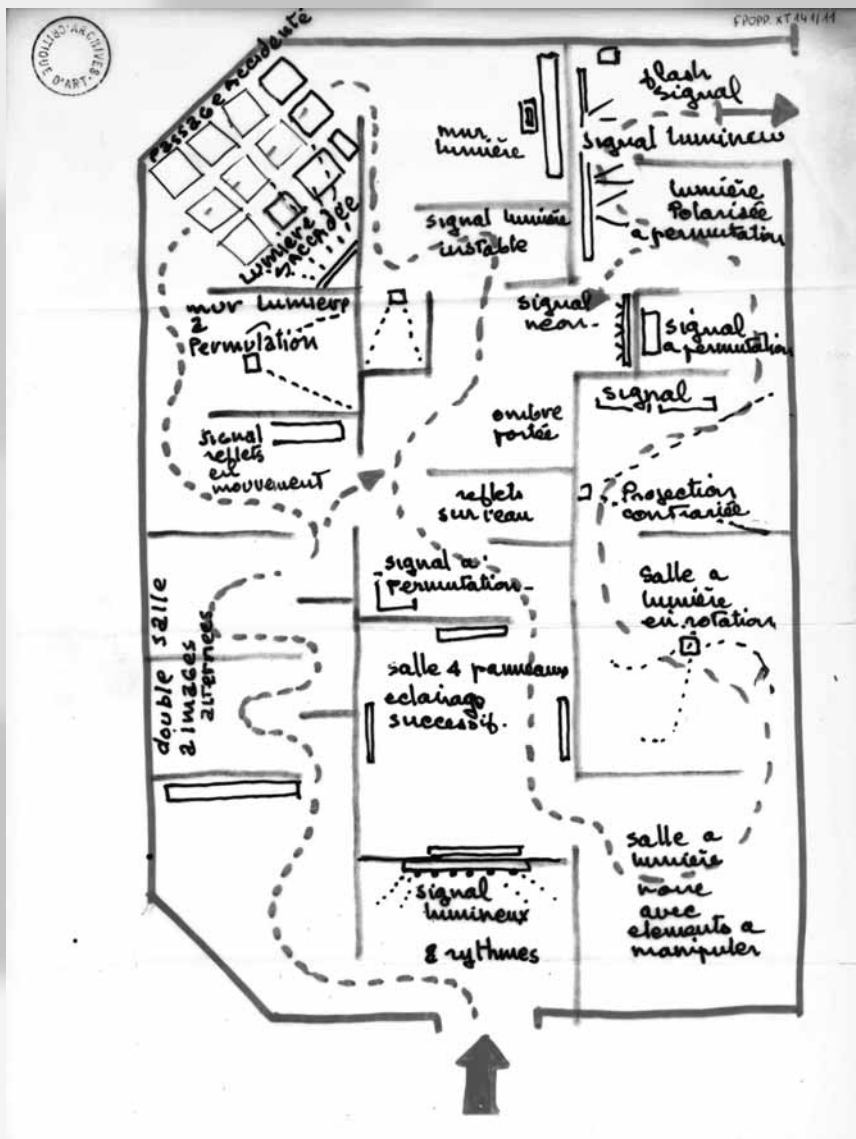 FPOPP. XT 141/11
ARCHIVES
CRITIQUE
D'ART
Passage Accidenté
Lumière
saccadée
mur
lumière
flash
signal
signal lumineux
lumière
Polarisée
a permutation
signal lumière
instable
mur lumiere
2
Permutation
signal
néon-
signal
a permutation
signal
signal
reflets
en
mouvement
ombre
portée
reflets
sur l'eau
Projection
contrariée
signal a
permutation-
Salle a
lumière
en rotation
double salle
a images
alternees
salle 4 panneaux
eclairage
successif.
signal
lumineux
8 rythmes
salle a
lumière
noire
avec
elements a
manipuler